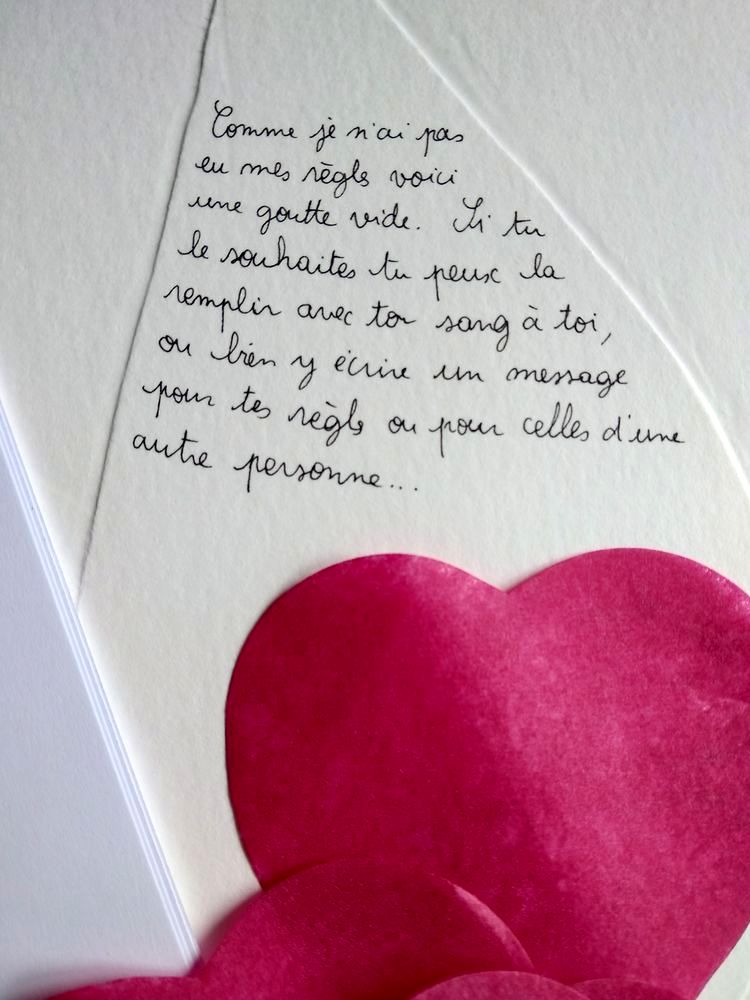 Comme je n'ai pas
eu mes règles voici
une goutte vide. Si tu
le souhaites tu peux la
remplir avec ton sang à toi,
ou bien y écrire un message
pour tes règles ou pour celles d'une
autre personne...